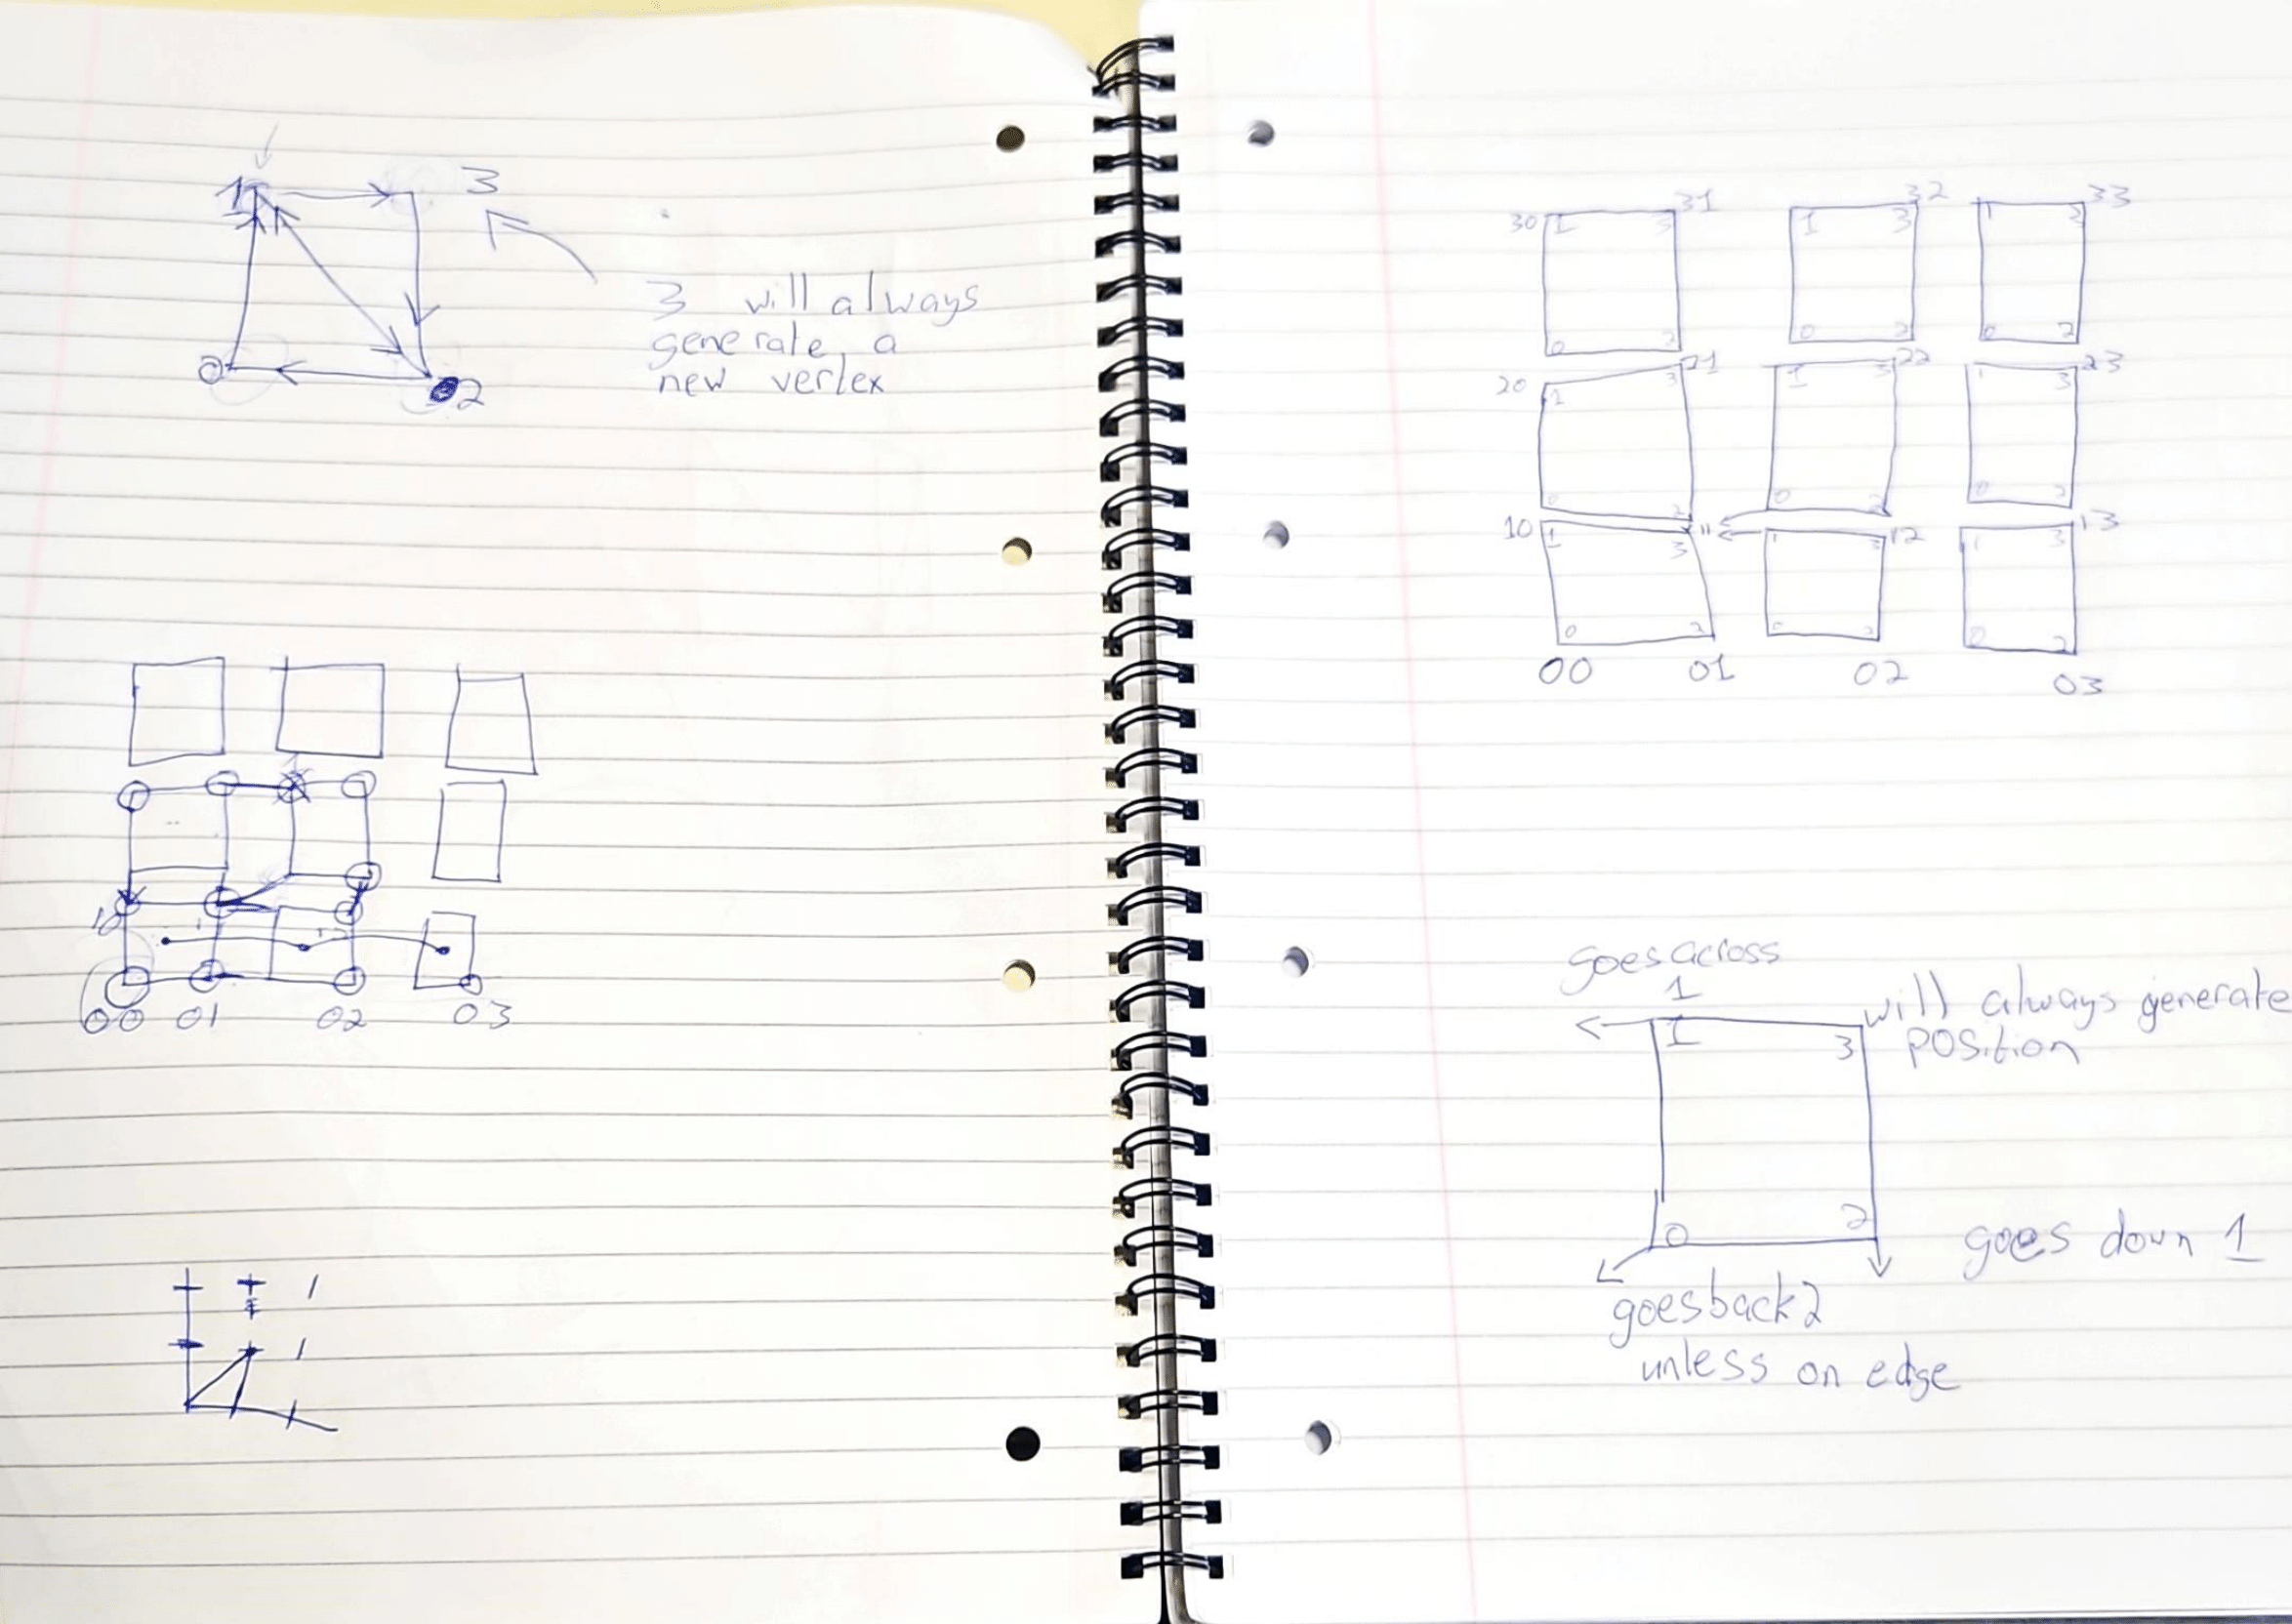 1 3
3 will always
generate, a
new vertex
0 2
1
10
00 01 02 03
1
1
30 1 3 31 1 3 32 1 3 33
0 2 0 2 0 2
20 1 3 21 1 3 22 1 3 23
0 2 0 2 0 2
10 1 3 11 1 3 12 1 3 13
0 2 0 2 0 2
00 01 02 03
goes across
1
1 3 will always generate
position
0 2
goes down 1
goes back 2
unless on edge